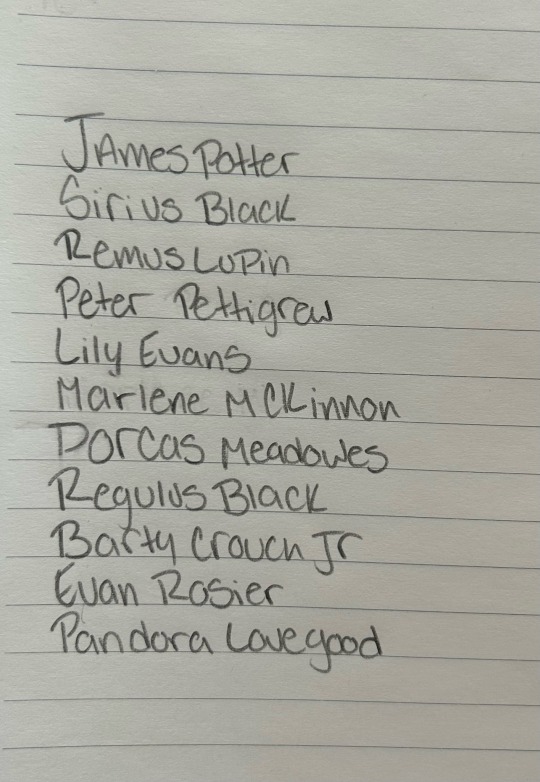 James Potter
Sirius Black
Remus Lupin
Peter Pettigrew
Lily Evans
Marlene McKinnon
Dorcas Meadowes
Regulus Black
Barty Crouch Jr
Evan Rosier
Pandora Lovegood